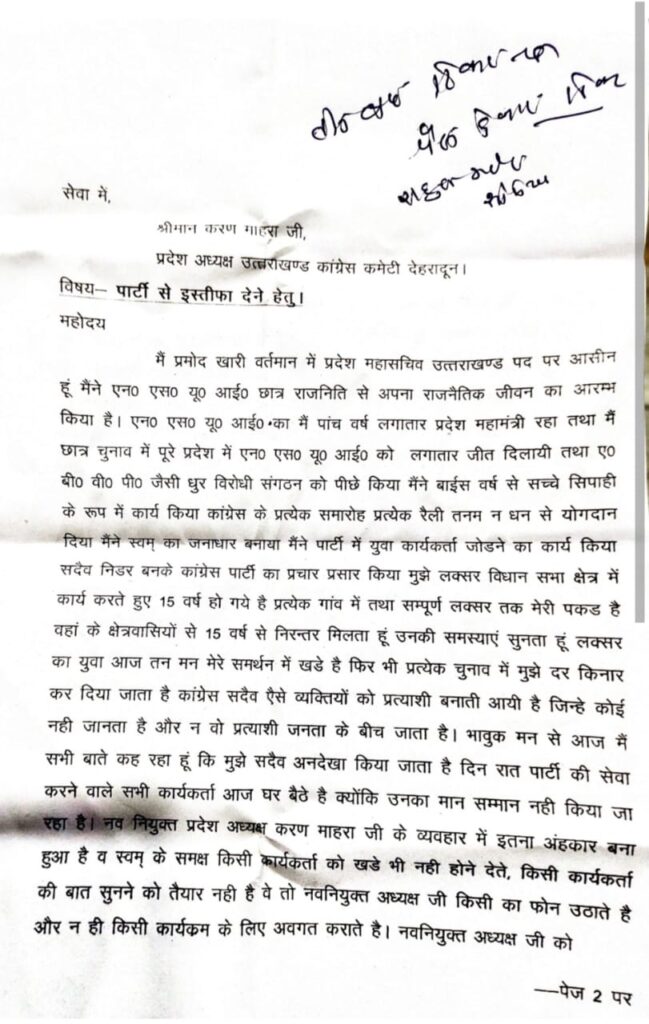 सेवा में,
श्रीमान करण माहरा जी,
प्रदेश अध्यक्ष उत्तराखण्ड कांग्रेस कमेटी देहरादून।
विषय– पार्टी से इस्तीफा देने हेतु।
महोदय
मैं प्रमोद खारी वर्तमान में प्रदेश महासचिव उत्तराखण्ड पद पर आसीन
हूं मैंने एन0 एस0 यू0 आई0 छात्र राजनिति से अपना राजनैतिक जीवन का आरम्भ
किया है। एन0 एस0 यू0 आई0 का मैं पांच वर्ष लगातार प्रदेश महामंत्री रहा तथा मैं
छात्र चुनाव में पूरे प्रदेश में एन0 एस0 यू0 आई0 को लगातार जीत दिलायी तथा ए0
बी0 वी0 पी0 जैसी धुर विरोधी संगठन को पीछे किया मैंने बाईस वर्ष से सच्चे सिपाही
के रूप में कार्य किया कांग्रेस के प्रत्येक समारोह प्रत्येक रैली तनम न धन से योगदान
दिया मैंने स्वम् का जनाधार बनाया मैंने पार्टी में युवा कार्यकर्ता जोडने का कार्य किया
सदैव निडर बनके कांग्रेस पार्टी का प्रचार प्रसार किया मुझे लक्सर विधान सभा क्षेत्र में
कार्य करते हुए 15 वर्ष हो गये है प्रत्येक गांव में तथा सम्पूर्ण लक्सर तक मेरी पकड है
वहां के क्षेत्रवासियों से 15 वर्ष से निरन्तर मिलता हूं उनकी समस्याएं सुनता हूं लक्सर
का युवा आज तन मन मेरे समर्थन में खडे है फिर भी प्रत्येक चुनाव में मुझे दर किनार
कर दिया जाता है कांग्रेस सदैव ऐसे व्यक्तियों को प्रत्याशी बनाती आयी है जिन्हे कोई
नही जानता है और न वो प्रत्याशी जनता के बीच जाता है। भावुक मन से आज मैं
सभी बाते कह रहा हूं कि मुझे सदैव अनदेखा किया जाता है दिन रात पार्टी की सेवा
करने वाले सभी कार्यकर्ता आज घर बैठे है क्योंकि उनका मान सम्मान नही किया जा
रहा है। नव नियुक्त प्रदेश अध्यक्ष करण माहरा जी के व्यवहार में इतना अंहकार बना
हुआ है व स्वम् के समक्ष किसी कार्यकर्ता को खडे भी नही होने देते, किसी कार्यकर्ता
की बात सुनने को तैयार नही है वे तो नवनियुक्त अध्यक्ष जी किसी का फोन उठाते है
और न ही किसी कार्यक्रम के लिए अवगत कराते है। नवनियुक्त अध्यक्ष जी को
––पेज 2 पर